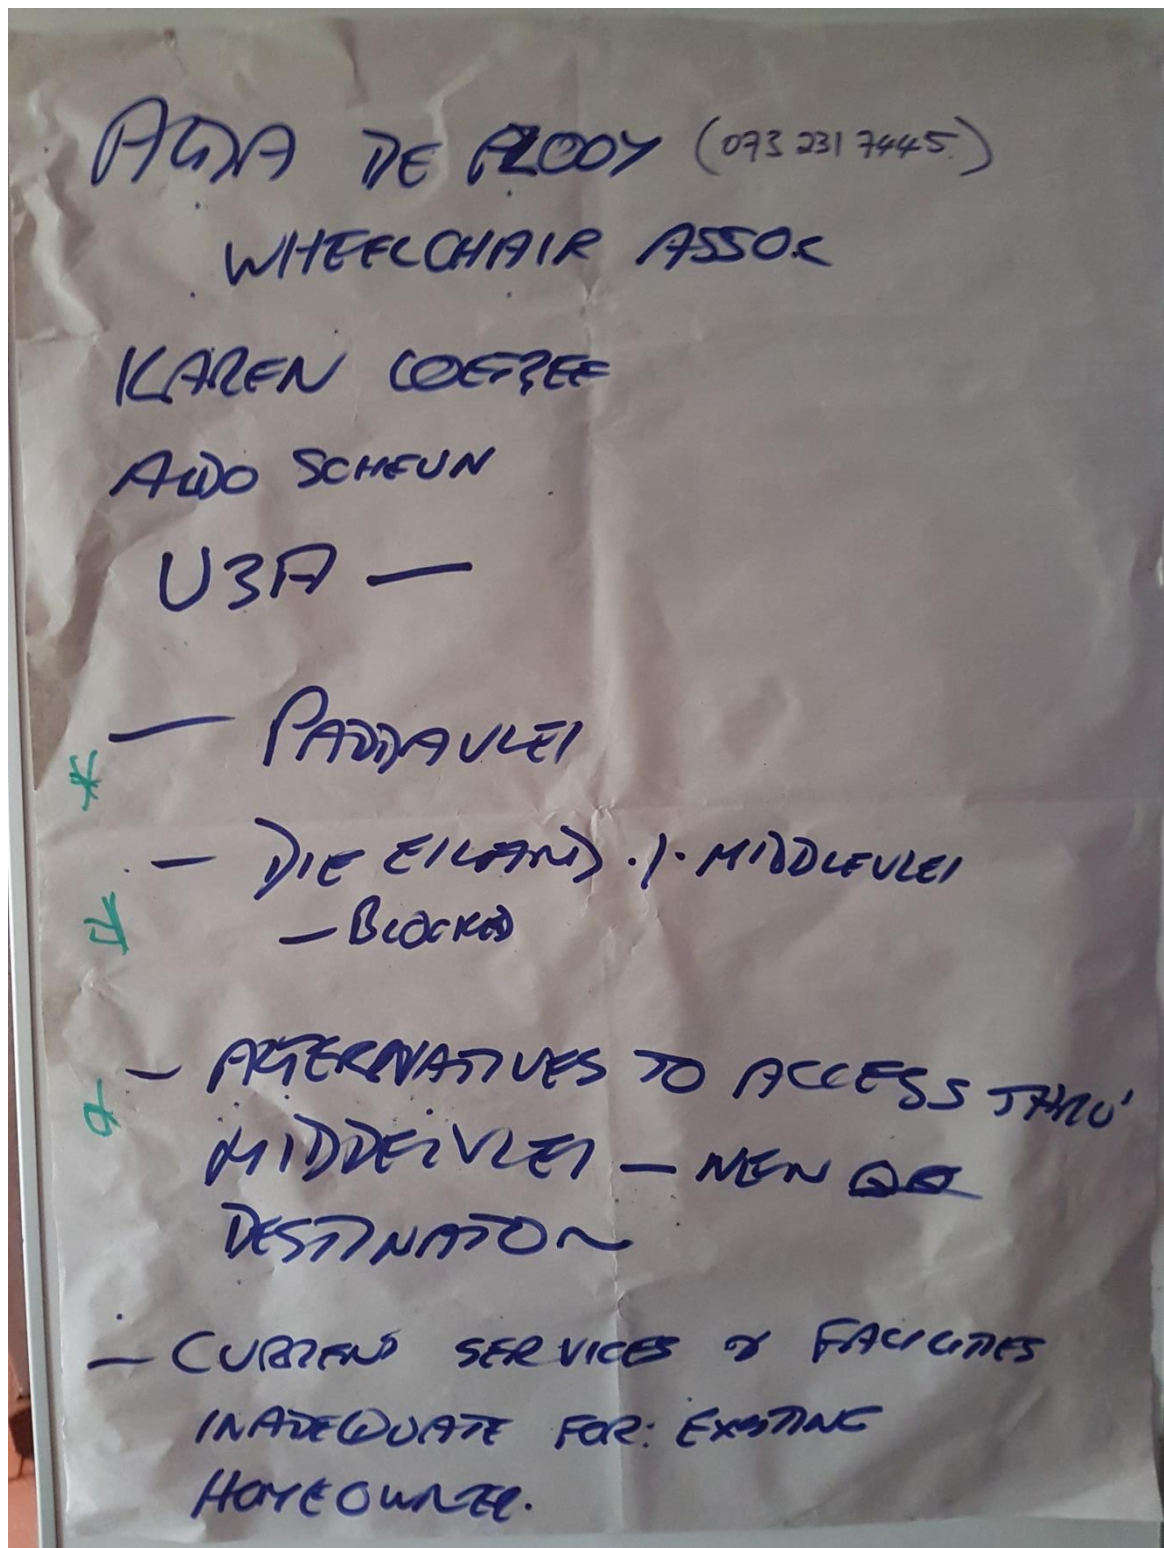 AGDA DE PLOOY (073 231 7445)
WHEELCHAIR ASSOC
KAREN COETZEE
ALDO SCHEUN
U3A —
— PADDAVLEI
— DIE EILAND . / . MIDDLEVLEI
— BLOCKED
— ALTERNATIVES TO ACCESS THRU'
MIDDELVLEI — NEW
DESTINATION
— CURRENT SERVICES & FACILITIES
INADEQUATE FOR: EXISTING
HOMEOWNER.